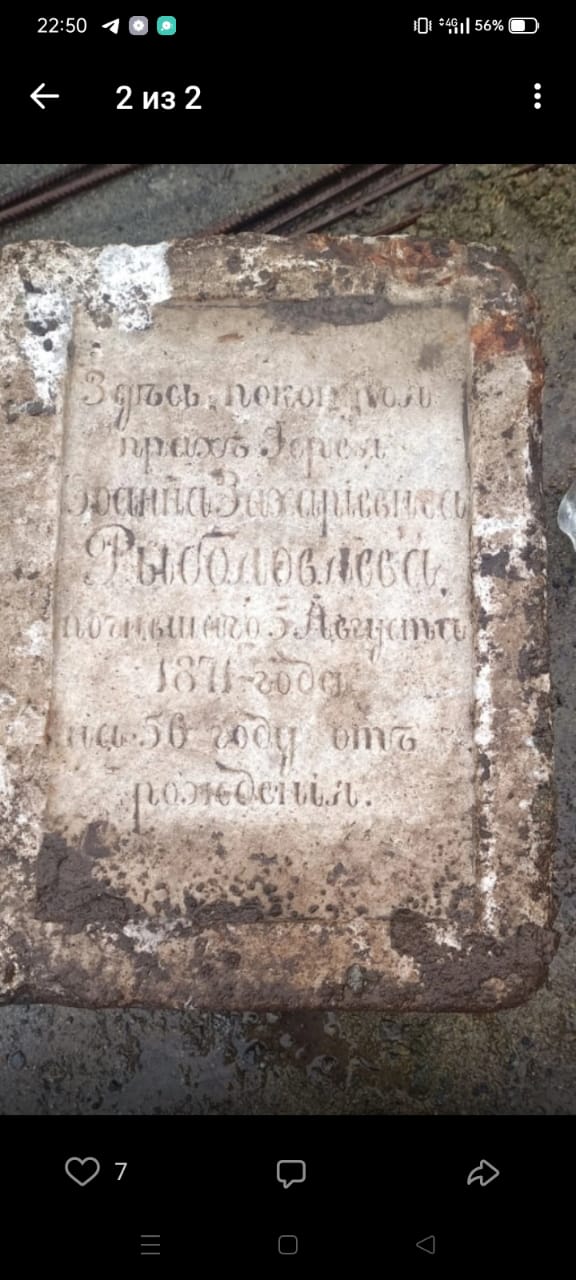 22:50
4G 56%
2 из 2
Здѣсь покоится
прахъ Іерея
Іоанна Захаріевича
Рыболовлева,
почившаго 5 Августа
1871 года
на 56 году отъ
рожденія.
7